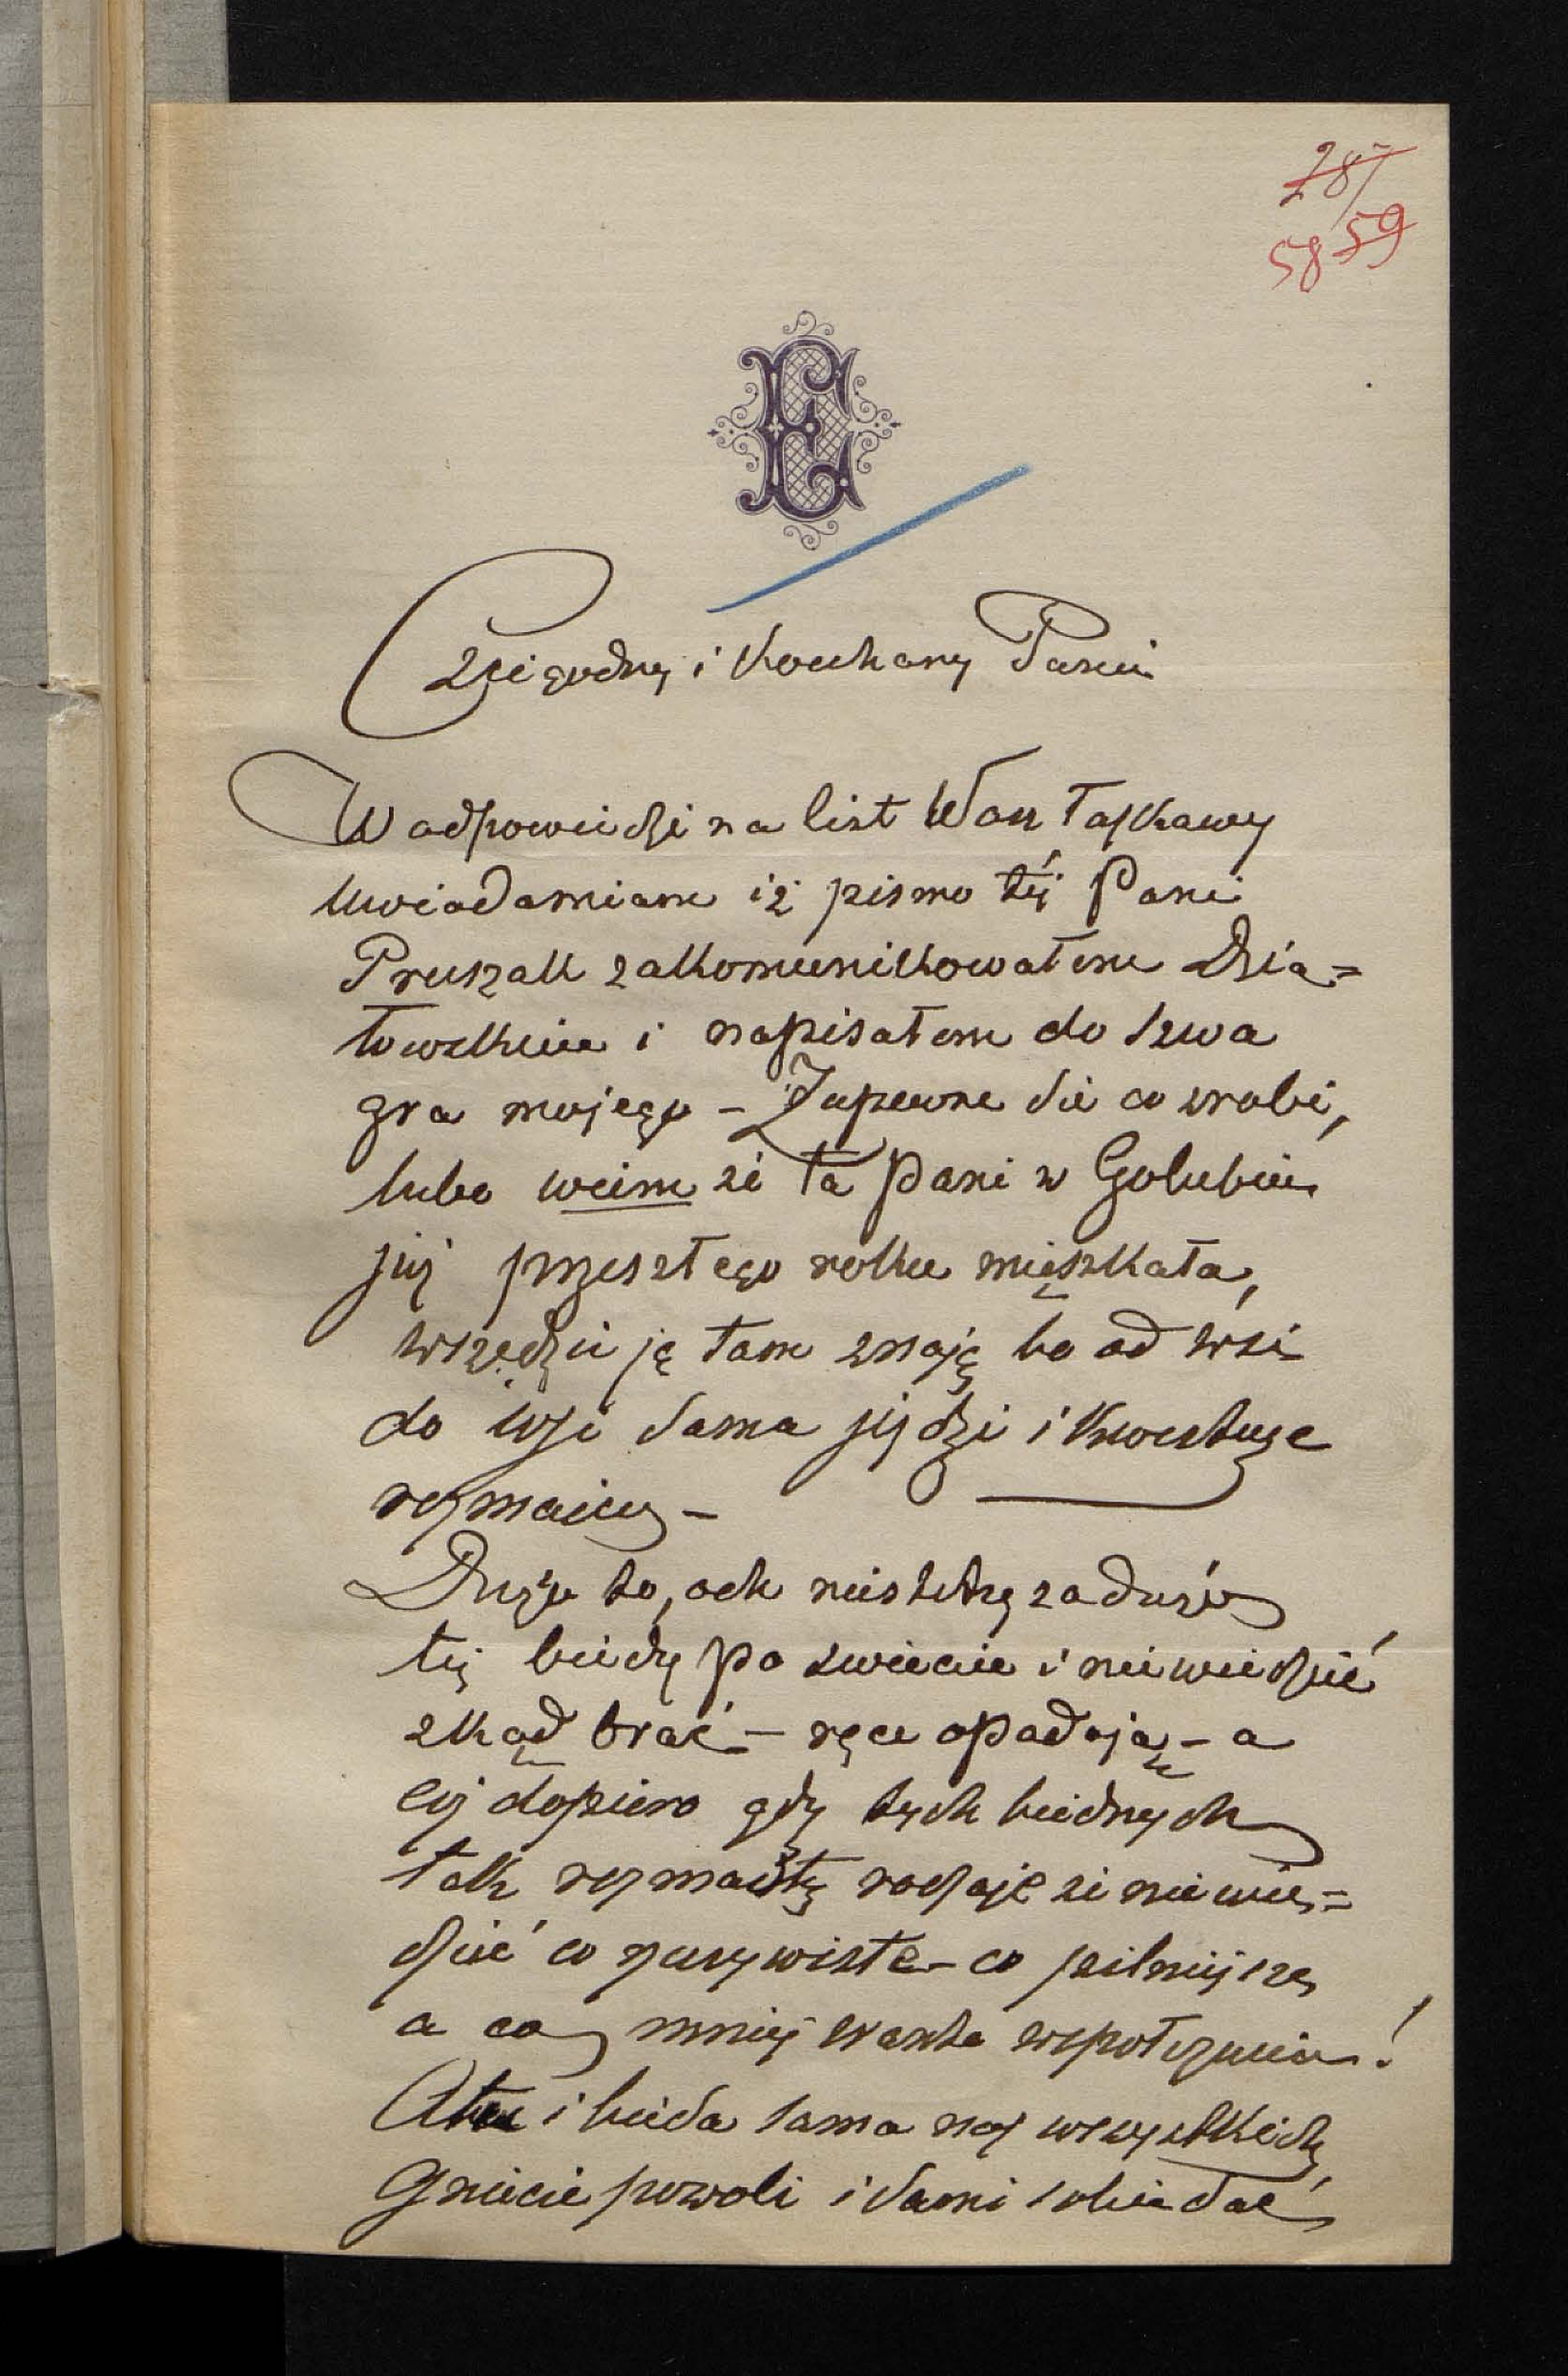 287
58 59
E
Czcigodny i Kochany Panie
W odpowiedzi na list Wasz łaskawy
uwiadamiam iż pismo téj Pani
Pruszak zakomunikowałem Dzia=
łowskiem i napisałem do szwa
gra mojego – Zapewne się co zrobi,
lubo wiem że ta Pani w Golubiu
już przeszłego roku mięszkała,
wszędzie ją tam znają bo od wsi
do wsi sama jeździ i kwestuje
rozmaicie –
Dużo to, ach niestety za dużo
téj biedy po świecie i niewiedzieć
zkąd brać – ręce opadają – a
cóż dopiero gdy tych biednych
tak rozmaite rodzaje że niewie=
dzieć co rzeczywiste – co pilniejsze
a co mniej warte współczucia!
A tu i bieda sama nas wszystkich
gniecie powoli i sami sobie dać